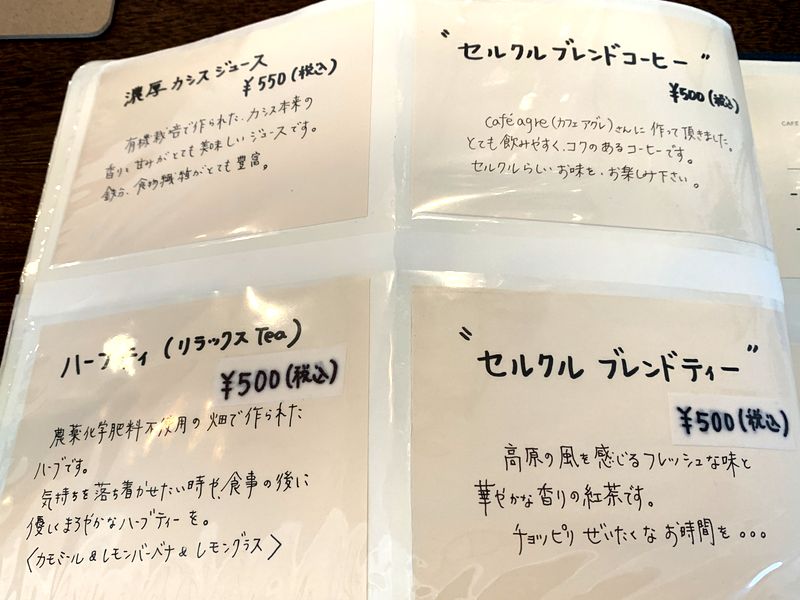 濃厚カシスジュース
¥550(税込)
有機栽培で作られた、カシス本来の
香りと甘みがとても美味しいジュースです。
鉄分、食物繊維がとても豊富。
"セルクルブレンドコーヒー"
¥500(税込)
café agre(カフェアグレ)さんに作って頂きました。
とても飲みやすく、コクのあるコーヒーです。
セルクルらしいお味を、お楽しみ下さい。
CAFE
ハーブティ(リラックスTea)
¥500(税込)
農薬化学肥料不使用の畑で作られた
ハーブです。
気持ちを落ち着かせたい時や、食事の後に
優しくまろやかなハーブティーを。
〈カモミール&レモンバーベナ&レモングラス〉
"セルクル ブレンドティー"
¥500(税込)
高原の風を感じるフレッシュな味と
華やかな香りの紅茶です。
チョッピリ ぜいたくな お時間を。。。